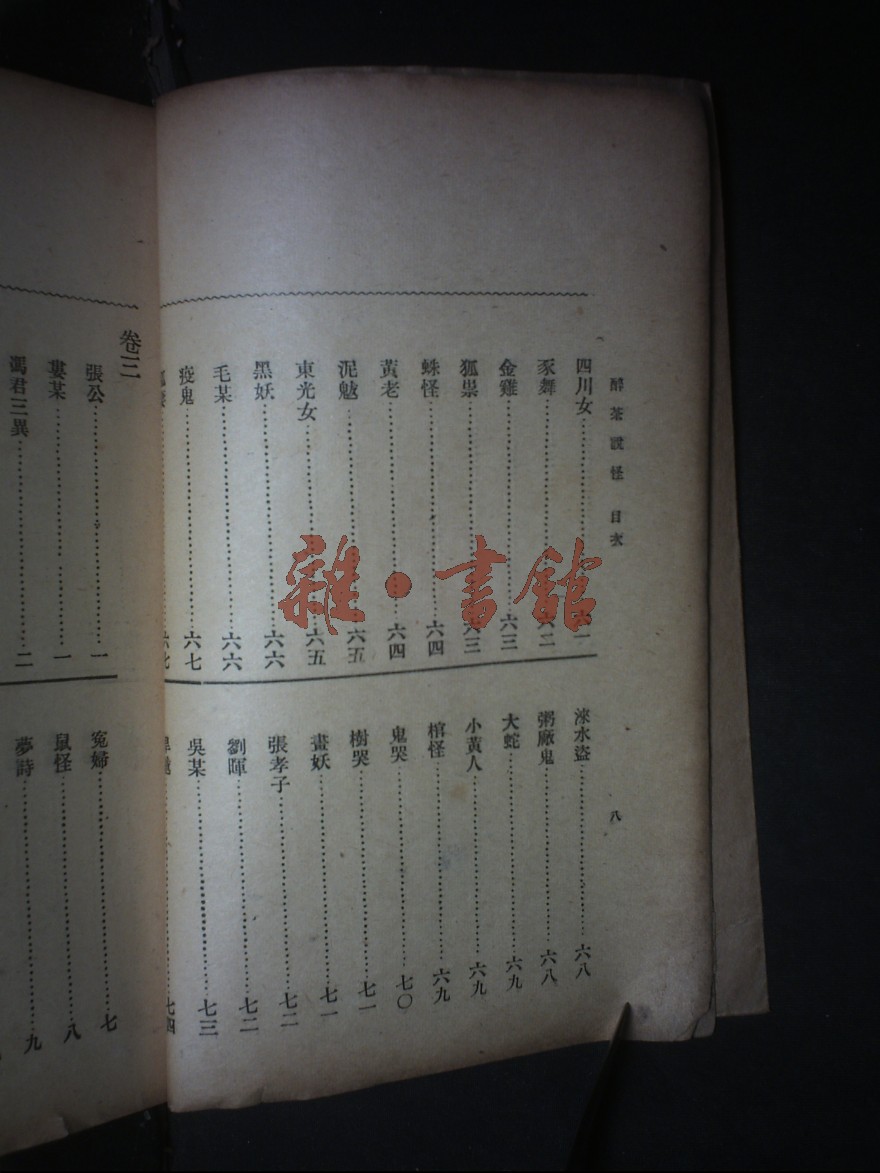 醉茶說怪 目次
八
四川女
豕舞
金雞……六三
狐祟……六三
蛛怪……六四
黃老……六四
泥魃……六五
東光女……六五
黑妖……六六
毛某……六六
疫鬼……六七
六七
淶水盜……六八
粥廠鬼……六八
大蛇……六九
小黃人……六九
棺怪……六九
鬼哭……七〇
樹哭……七一
畫妖……七一
張孝子……七二
劉暉……七二
吳某……七三
七四
卷三
張公……一
婁某……一
馮君三異……二
冤婦……七
鼠怪……八
夢詩……九
雜·書館